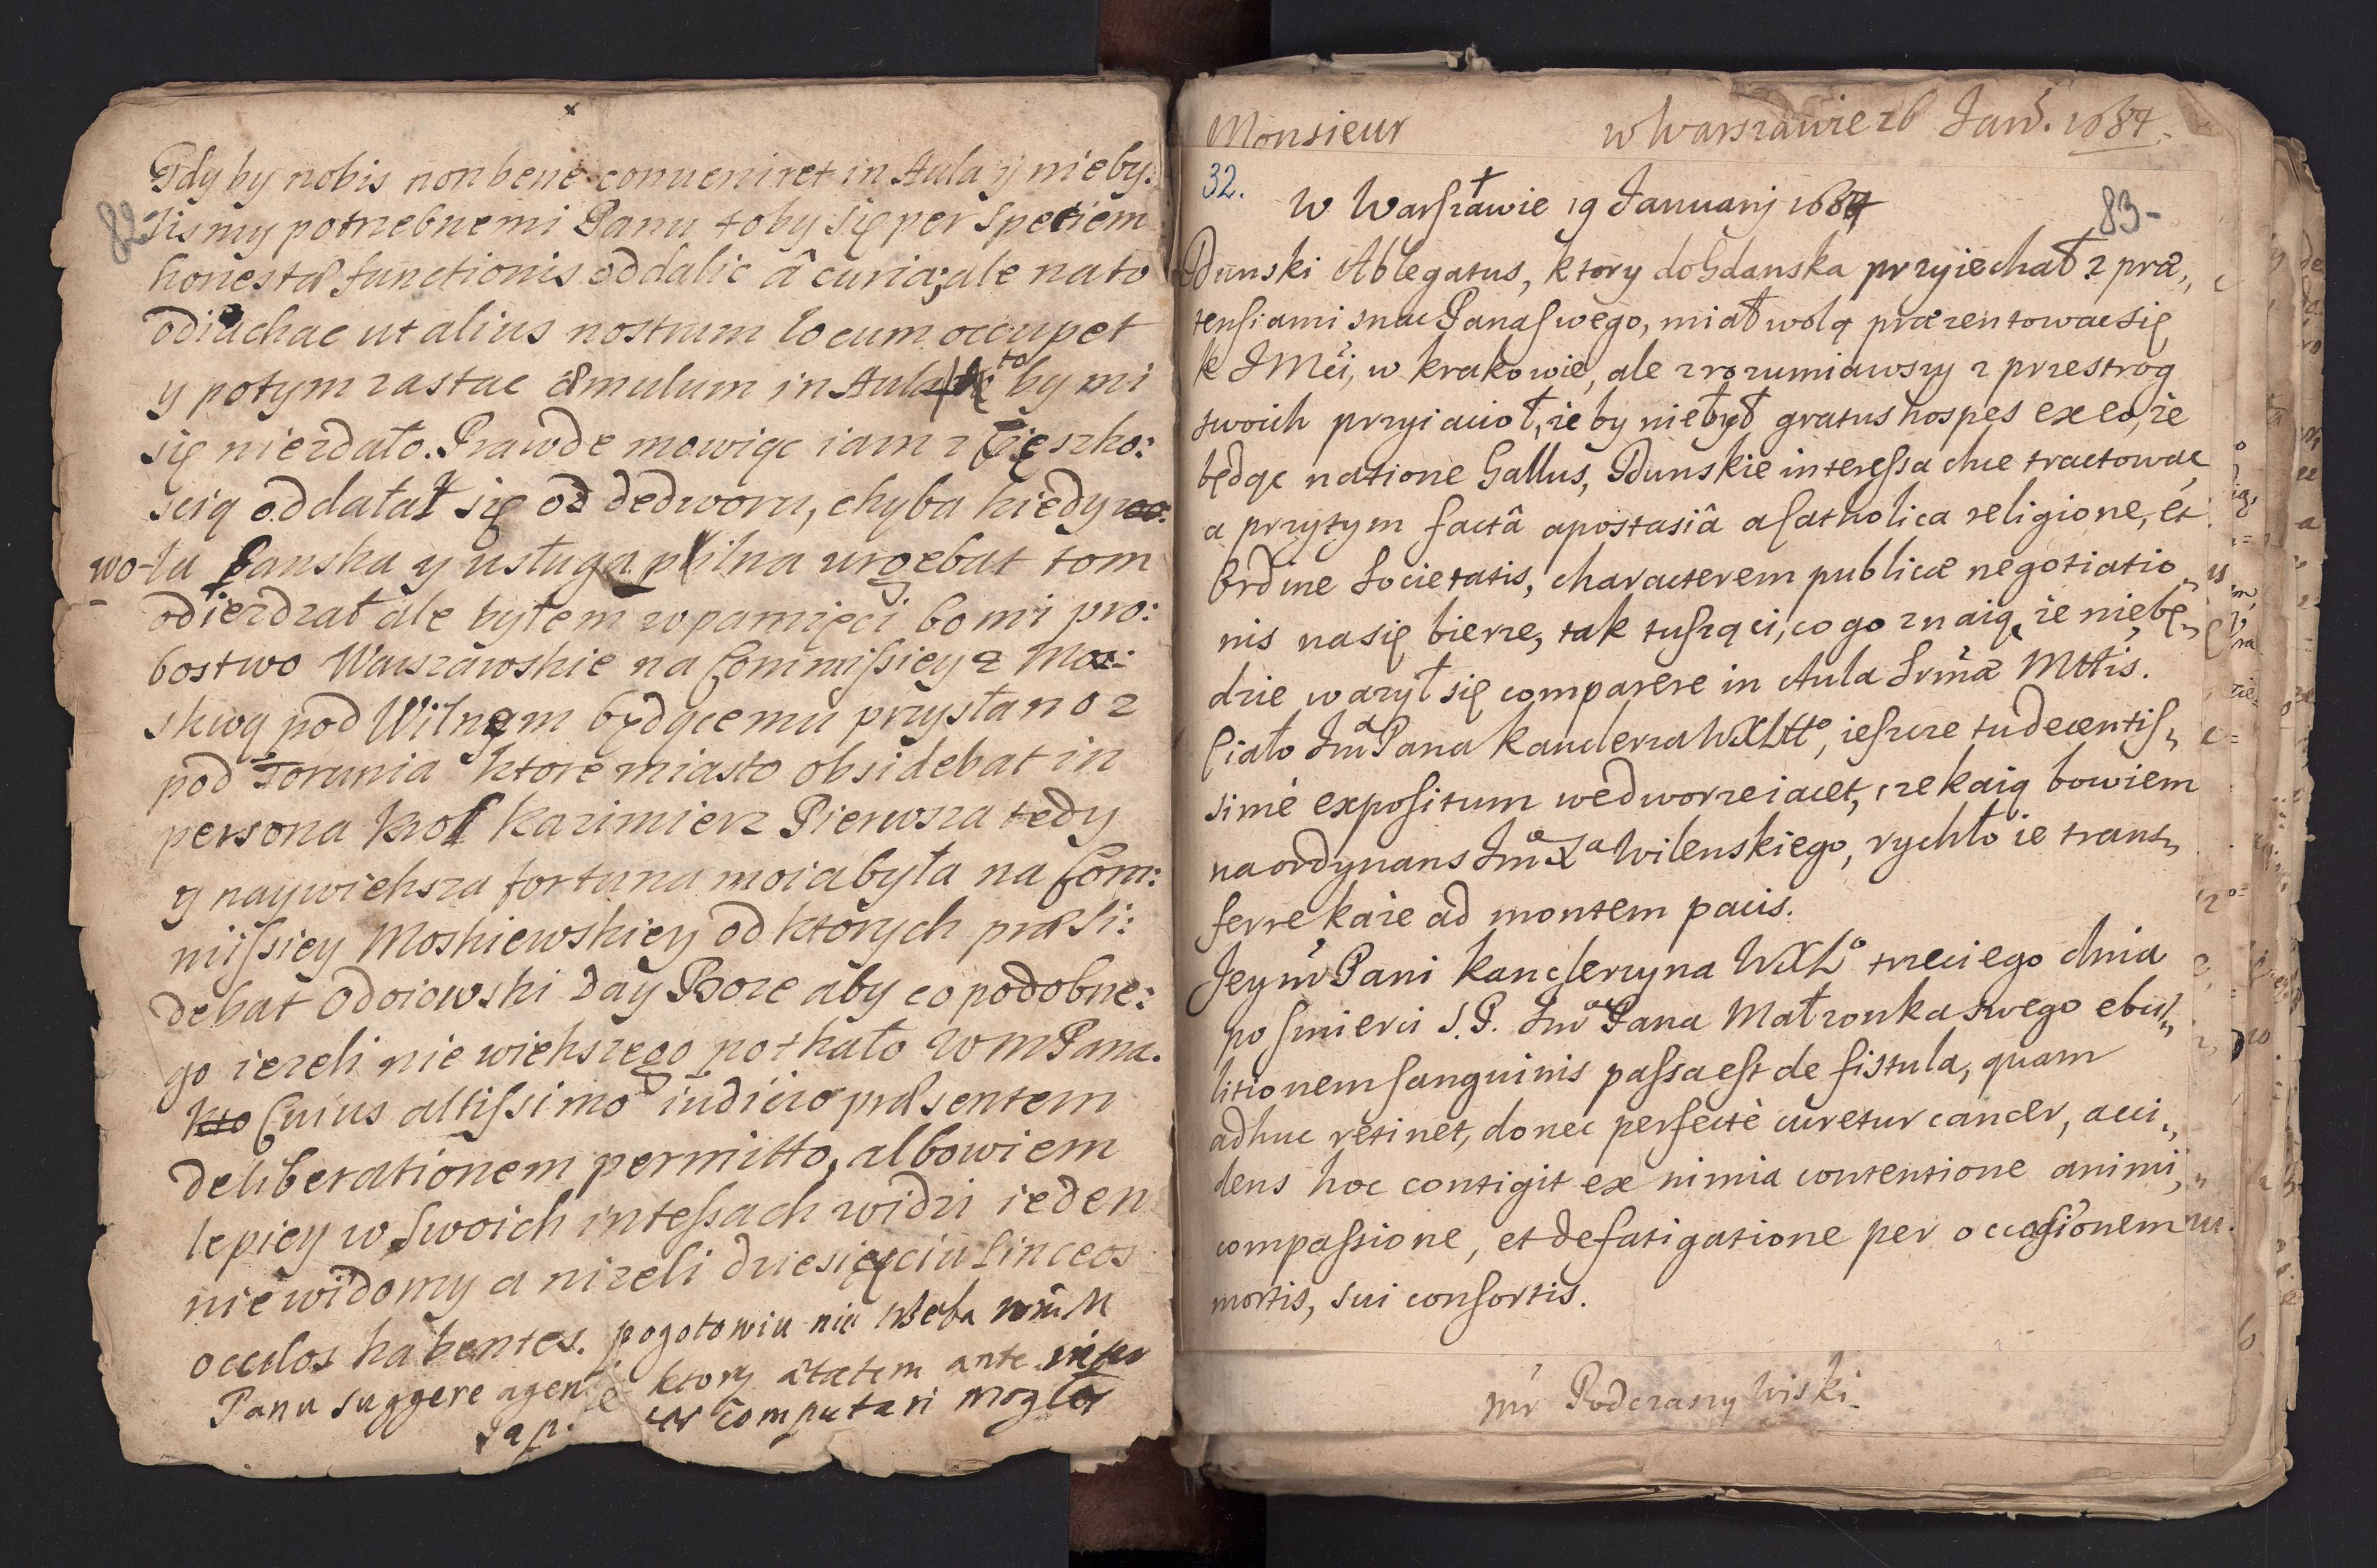 82
Gdy by nobis non bene conueniret in Aula y nieby:
lismy potrzebnemi Panu toby się per speciem
honestæ functionis oddalic â curia; ale na to
odiachac ut alius nostrum locum occupet
y potym zastac æmulum in Aula to by mi
się niezdało. Prawde mowiąc iam z Cięszko:
scią oddalał się od dedworu, chyba kiedy wo:
wo-la Panska y usługa pilna urgebat tom
odiezdzał ale byłem w pamięci bo mi pro:
bostwo Warszawskie na Commissiey z Mo:
skwą pod Wilnem będącemu przysłano z
pod Torunia ktore miasto obsidebat in
persona Krol Kazimierz Pierwsza tedy
y naywieksza fortuna moia była na Com:
missiey Moskiewskiey od ktorych præsi:
debat Odoiowski Day Boze aby co podobne:
go iezeli nie wiekszego potkało WmPana.
kto Cuius altissimo iudicio præsentem
deliberationem permitto, albowiem
lepiey w swoich intessach widzi ieden
niewidomy a nizeli dziesięciu linceos
oculos habentes. pogotowiu nic trzeba
Panu suggere agen ktory ætatem ante
sap. computari mogł
Monsieur w Warszawie 26 Jan. 1684.
32. W Warszawie 19 Januarij 1684 83-
Dunski Ablegatus, ktory do Gdanska przyiechał z præ„
tensiami snac Pana swego, miał wolą præzentowac się
K JMci, w Krakowie, ale zrozumiawszy z przestrog
swoich przyiacioł, ze by nie był gratus hospes ex eo, ze
będąc natione Gallus, Dunskie interessa chce tractowac,
a przytym factâ apostasiâ a Catholica religione, et
Ordine Societatis, characterem publicæ negotiatio„
nis na się bierze, tak tuszą ci, co go znaią, ze nie bę„
dzie wazył się comparere in Aula Srmæ Mttis.
Ciało Jmᵃ Pana Kanclerza WXLttᵒ, ieszcze tu decentis„
simè expositum we dworze iacet, czekaią bowiem
na ordynans Jmᵃ Xᵃ Wilenskiego, rychło ie trans„
ferre kaze ad montem pacis.
Jeym Pani Kanclerzyna WXLᵒ trzeciego dnia
po smierci S.P. Jmᵃ Pana Małzonka swego ebul„
litionem sanguinis passa est de fistula, quam
adhuc retinet, donec perfectè curetur cancer, acci„
dens hoc contigit ex nimia contentione animi,
compassione, et defatigatione per occasionem
mortis, sui consortis.
mr Podczaszy Liski